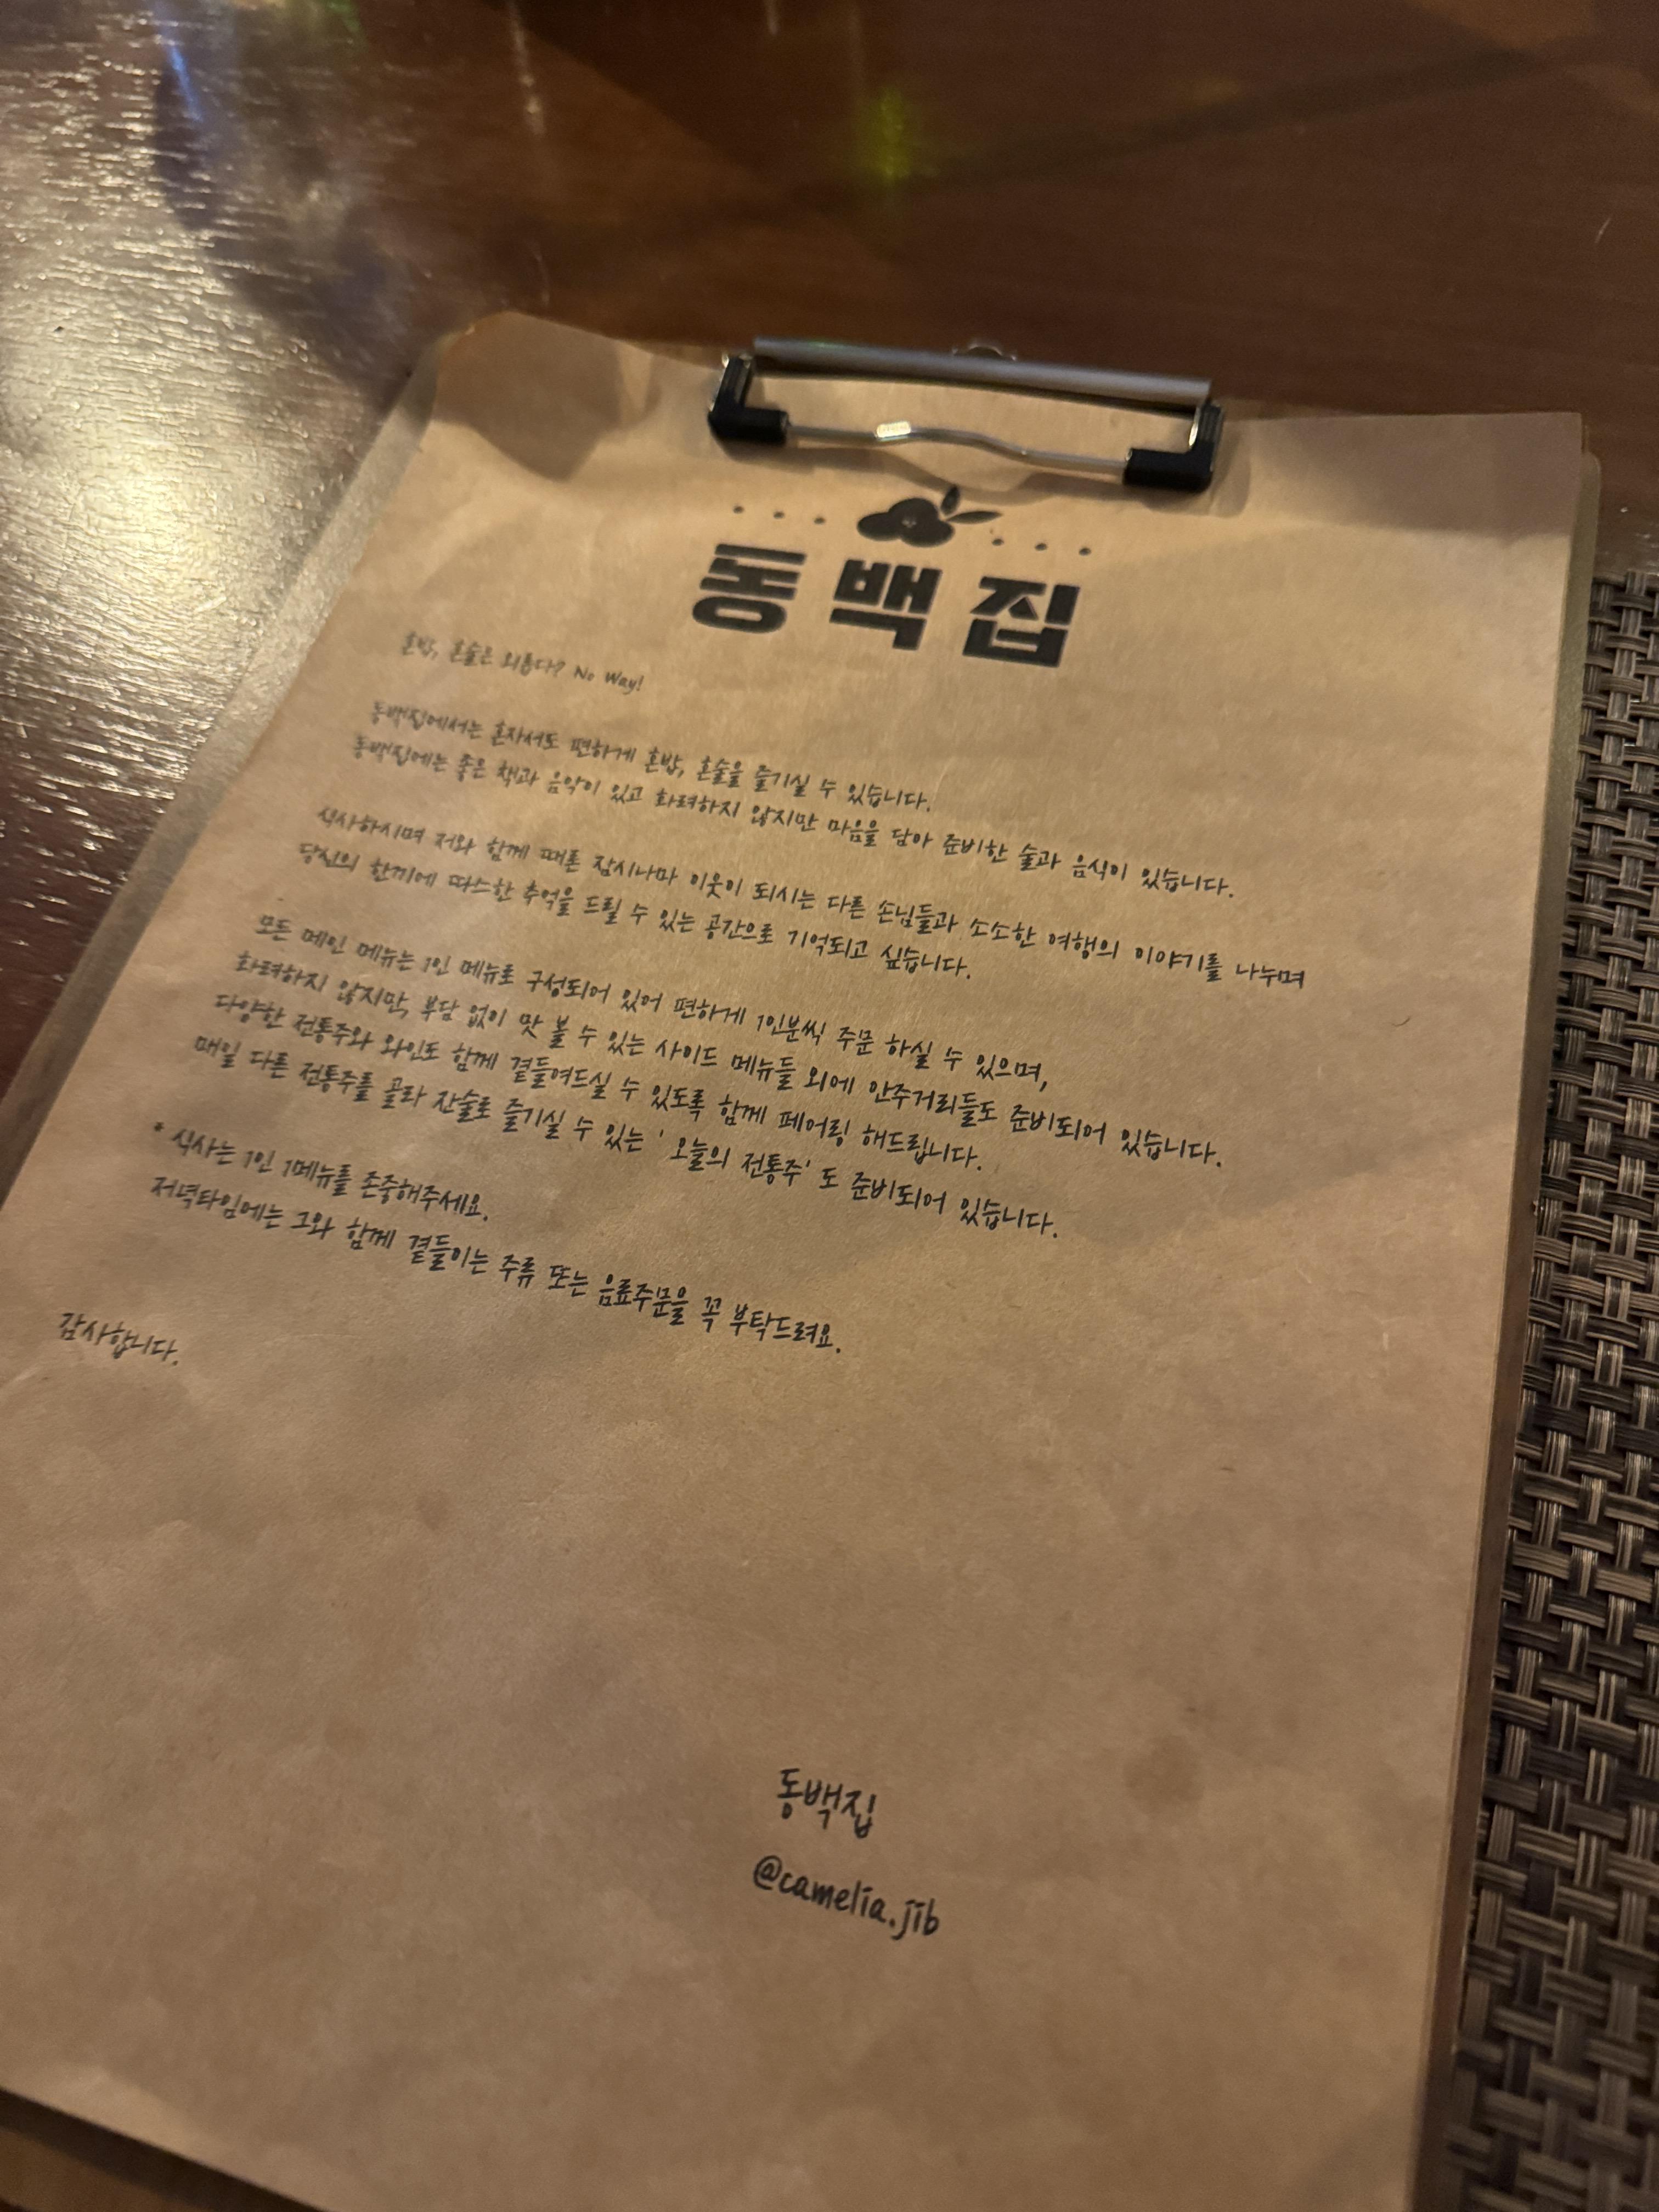 동백집
혼밥, 혼술은 외롭다? No Way!
동백집에서는 혼자서도 편하게 혼밥, 혼술을 즐기실 수 있습니다.
동백집에는 좋은 책과 음악이 있고 화려하지 않지만 마음을 담아 준비한 술과 음식이 있습니다.
식사하시며 저와 함께 때론 잠시나마 이웃이 되시는 다른 손님들과 소소한 여행의 이야기를 나누며
당신의 한끼에 따스한 추억을 드릴 수 있는 공간으로 기억되고 싶습니다.
모든 메인 메뉴는 1인 메뉴로 구성되어 있어 편하게 1인분씩 주문 하실 수 있으며,
화려하지 않지만, 부담 없이 맛 볼 수 있는 사이드 메뉴들 외에 안주거리들도 준비되어 있습니다.
다양한 전통주와 와인도 함께 곁들여드실 수 있도록 함께 페어링 해드립니다.
매일 다른 전통주를 골라 잔술로 즐기실 수 있는 ' 오늘의 전통주' 도 준비되어 있습니다.
* 식사는 1인 1메뉴를 존중해주세요.
저녁타임에는 그와 함께 곁들이는 주류 또는 음료주문을 꼭 부탁드려요.
감사합니다.
동백집
@camelia.jib